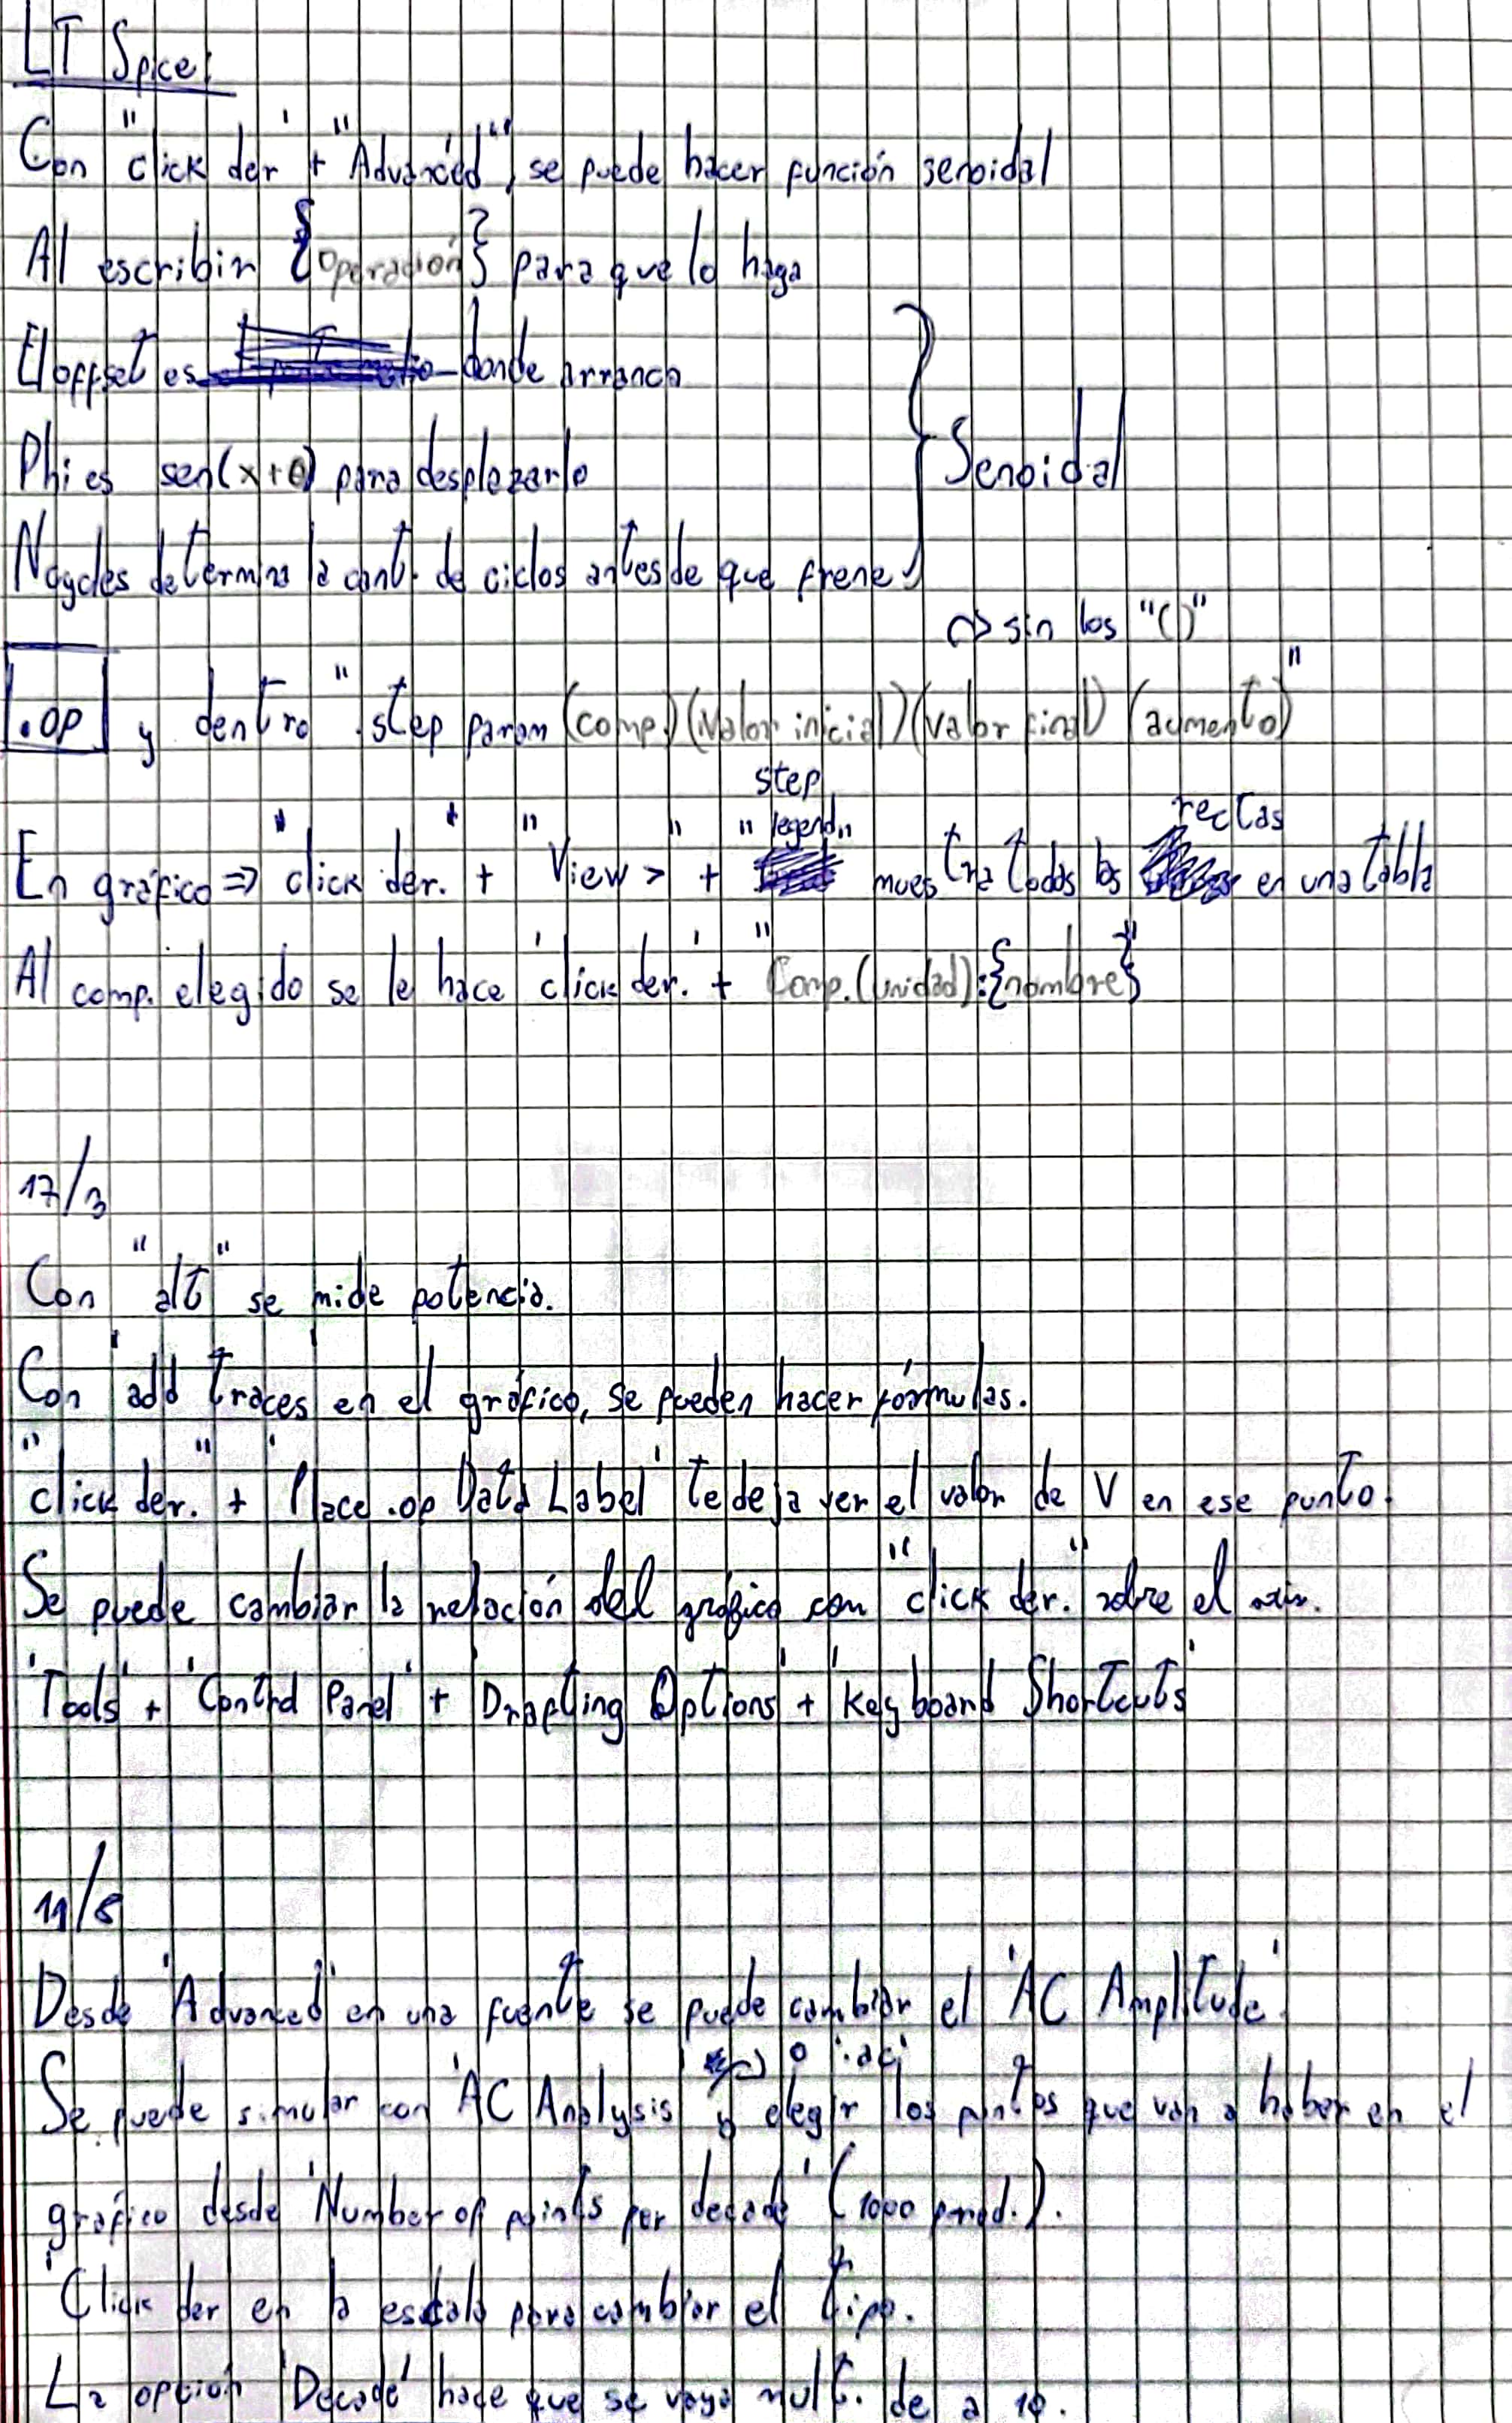 LT Spice:
Con "click der" + "Advanced", se puede hacer función senoidal
Al escribir {operación} para que lo haga
El offset es donde arranca
Phi es sen(x+θ) para desplazarlo
Senoidal
Ncycles determina la cant. de ciclos antes de que frene
↳ sin los "()"
.op y dentro ".step param (comp.) (Valor inicial) (valor final) (aumento)"
En gráfico ⇒ "click der." + "View >" + "step legend" muestra todas las rectas en una tabla
Al comp. elegido se le hace 'click der.' + "Comp. (unidad): {nombre}"
17/3
Con "alt" se mide potencia.
Con 'add traces' en el gráfico, se pueden hacer fórmulas.
"click der." + 'Place .op Data Label' te deja ver el valor de V en ese punto.
Se puede cambiar la relación del gráfico con "click der." sobre el axis.
'Tools' + 'Control Panel' + 'Drafting Options' + 'Keyboard Shortcuts'
11/8
Desde 'Advanced' en una fuente se puede cambiar el 'AC Amplitude'.
↳ o '.ac'
Se puede simular con 'AC Analysis y elegir los puntos que van a haber en el
gráfico desde 'Number of points per decade' (1000 pred.).
'Click der en la escala para cambiar el tipo.
La opción 'Decade' hace que se vaya mult. de a 10.